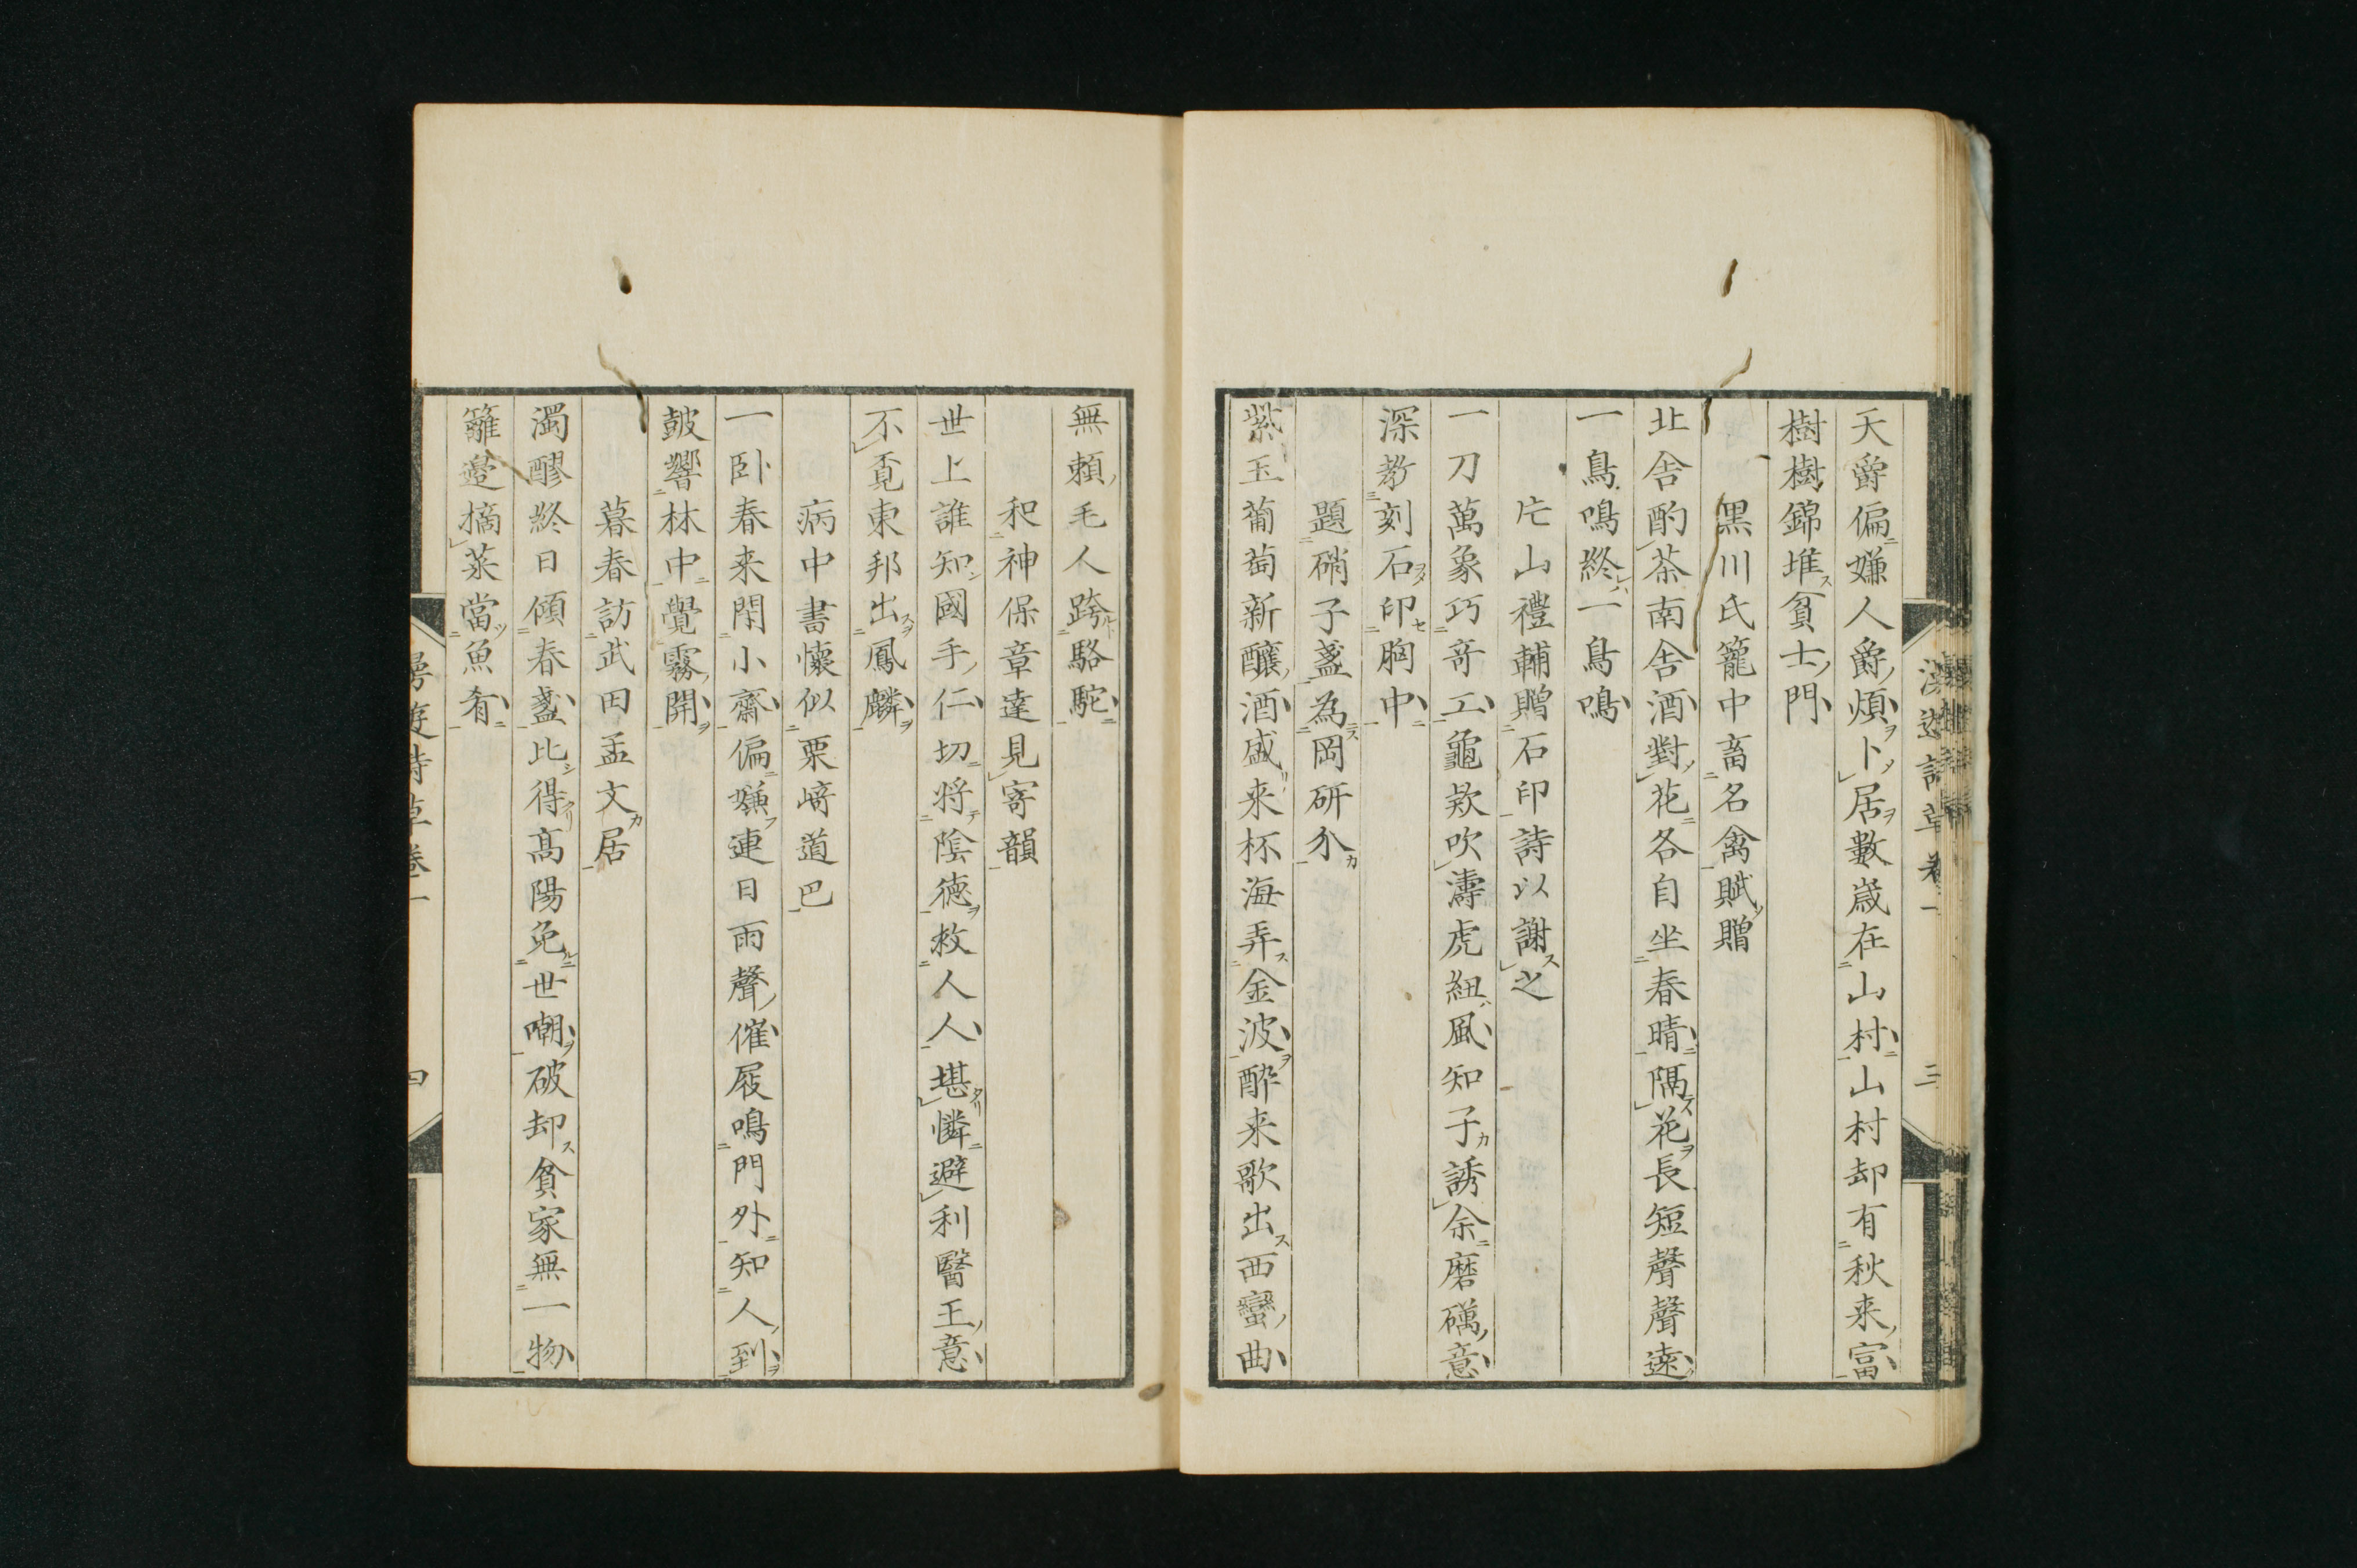 天爵偏嫌人爵煩卜居數歳在山村山村却有秋来富
樹樹錦堆貧士門
黒川氏籠中畜名禽賦贈
北舎酌茶南舎酒對花各自坐春晴隔花長短聲聲遠
一鳥鳴終一鳥鳴
片山禮輔贈石印詩以謝之
一刀萬象巧奇工龜欵吹濤虎紐風知子誘余磨礪意
深教刻石印胸中
題硝子盞為岡研介
紫玉葡萄新釀酒盛来杯海弄金波酔来歌出西蠻曲
無頼毛人跨駱駝
和神保章達見寄韻
世上誰知國手仁切将陰徳救人人堪憐避利醫王意
不覓東邦出鳳麟
病中書懐似栗﨑道巴
一卧春来閉小齋偏嫌連日雨聲催屐鳴門外知人到
鼓響林中覺霧開
暮春訪武田孟文居
濁醪終日傾春盞比得髙陽免世嘲破却貧家無一物
籬邉摘菜當魚肴
漫遊詩草巻一
三
漫遊詩草巻一
四